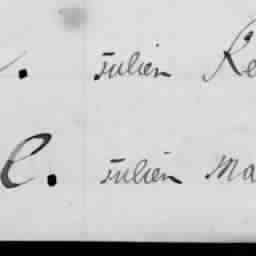 . Julien Ke
C. Julien Ma